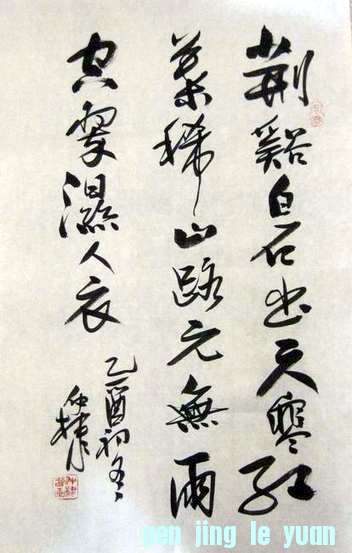 荆谿白石出天寒红
叶稀山路元無雨
空翠濕人衣
乙酉初冬
pen jing le yuan